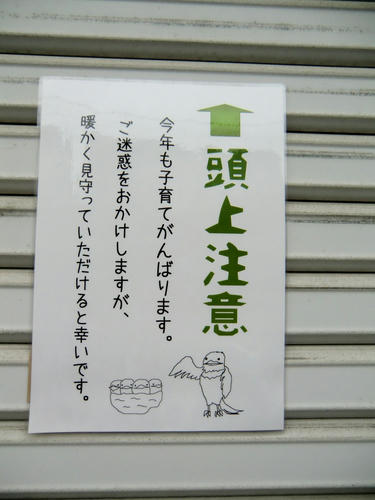 頭上注意
今年も子育てがんばります。
ご迷惑をおかけしますが、
暖かく見守っていただけると幸いです。